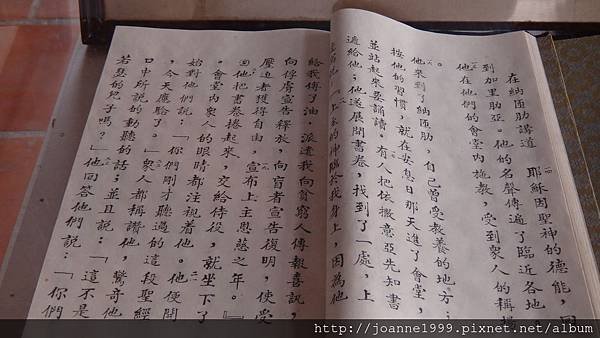 在納匝肋講道　耶穌因聖神的德能，回
到加里肋亞。他的名聲傳遍了臨近各地
他在他們的會堂內施教，受到眾人的稱揚
。
他來到了納匝肋，自己曾受教養的地方；
按他的習慣，就在安息日那天進了會堂，
並站起來要誦讀。有人把依撒意亞先知書
遞給他；他遂展開書卷，找到了一處，上
「上主的神臨於我身上，因為他
給我傅了油，派遣我向貧窮人傳報喜訊，
向俘虜宣告釋放，向盲者宣告復明，使受
壓迫者獲得自由，宣布上主恩慈之年。』
他把書卷捲起來，交給侍役，就坐下了
。會堂內眾人的眼睛都注視著他。他便開
始對他們說：「你們剛才聽過的這段聖經
，今天應驗了。」眾人都稱讚他，驚奇他
口中所說的動聽的話；並且說：「這不是
若瑟的兒子嗎？」他回答他們說：「你們
http://joanne1999.pixnet.net/album